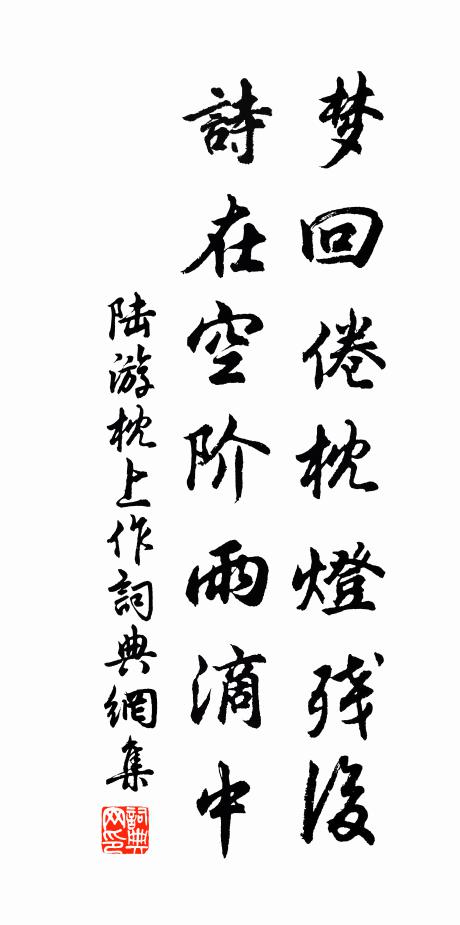 梦回倦枕燈残後
詩在空阶雨滴中
陆游枕上作詞典網集
詞典网印